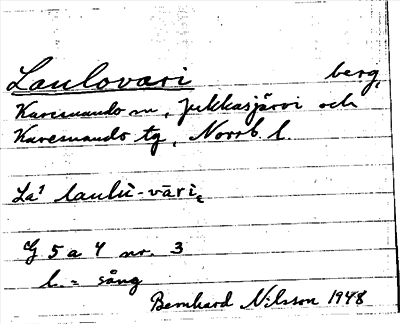 Laulovari berg,
Karesuando sn, Jukkasjärvi och
Karesuando tg, Norrb. l.
La¹ laulu-vāri
G 5 a 4 nr. 3
l. = sång
Bernhard Nilsson 1948